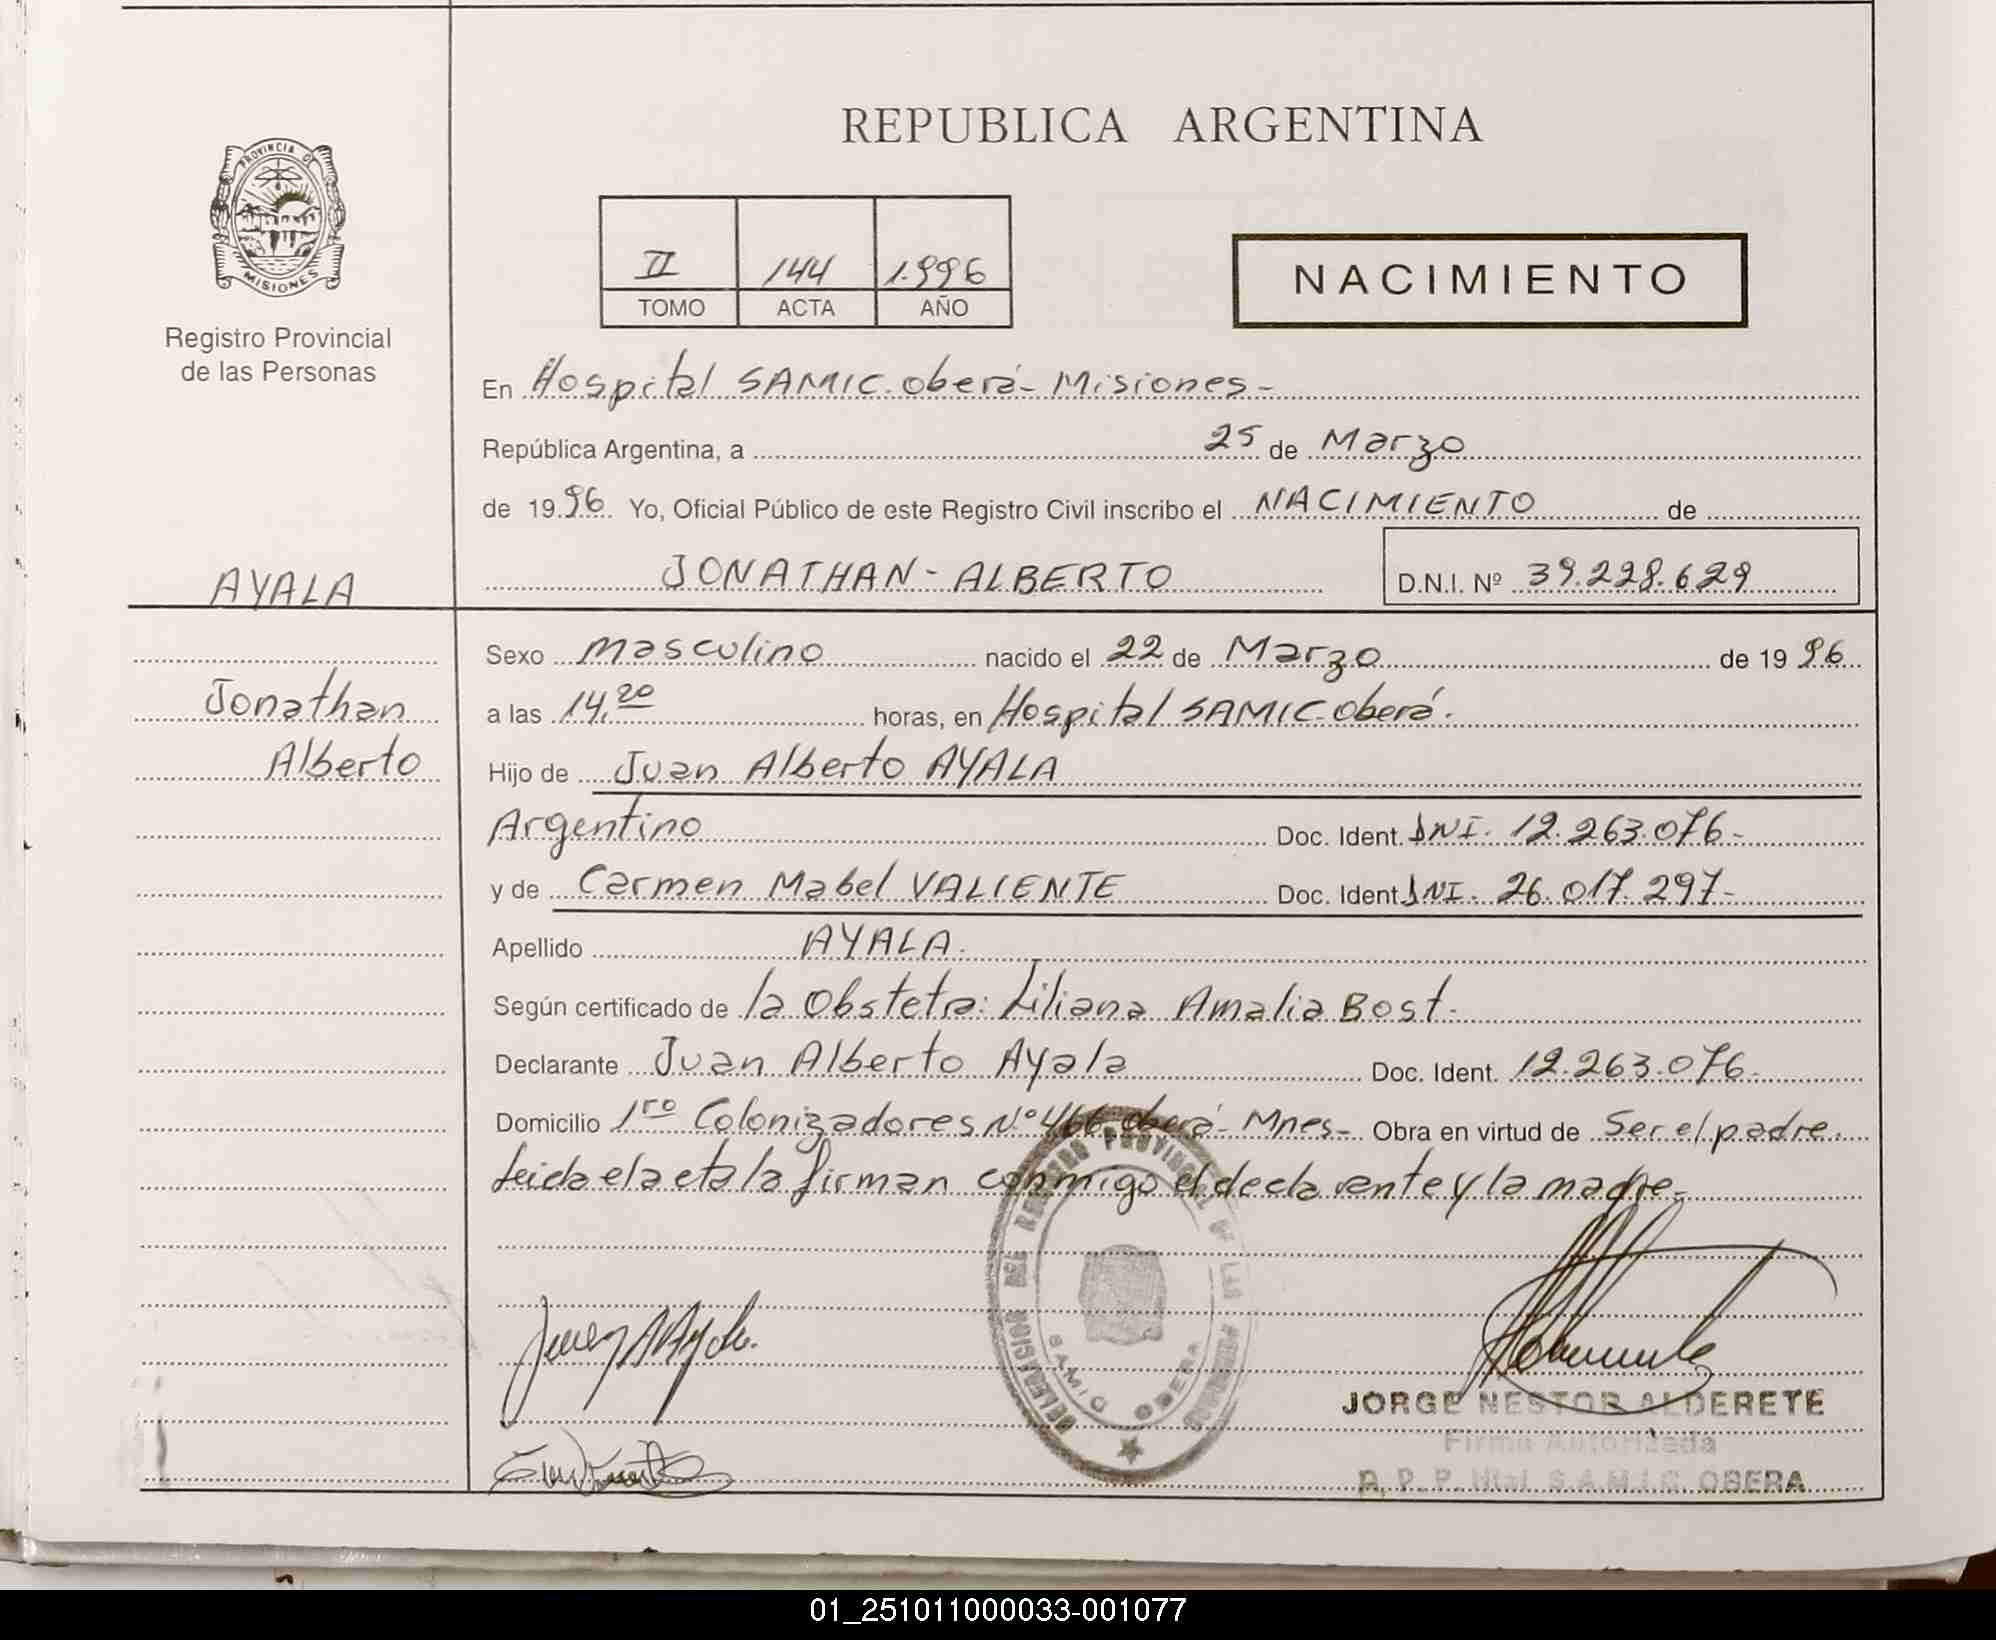 REPUBLICA ARGENTINA
PROVINCIA DE
MISIONES
Registro Provincial
de las Personas
II 144 1.996
TOMO ACTA AÑO
NACIMIENTO
En Hospital SAMIC.oberá-Misiones-
República Argentina, a 25 de Marzo
de 1996 Yo, Oficial Público de este Registro Civil inscribo el NACIMIENTO de
AYALA
JONATHAN-ALBERTO D.N.I. Nº 39.228.629
Jonathan
Alberto
Sexo masculino nacido el 22 de Marzo de 1996
a las 14.20 horas, en Hospital SAMIC-oberá.
Hijo de Juan Alberto AYALA
Argentino Doc. Ident. DNI. 12.263.076-
y de Carmen Mabel VALIENTE Doc. Ident DNI. 26.017.297-
Apellido AYALA.
Según certificado de la Obstetra: Liliana Amalia Bost.
Declarante Juan Alberto Ayala Doc. Ident. 12.263.076-
Domicilio 1ro Colonizadores Nº466.oberá-Mnes- Obra en virtud de Ser el padre.
Leida el acta la firman conmigo el declarante y la madre-
DELEGACION DEL REGISTRO PROVINCIAL DE LAS PERSONAS
SAMIC OBERA
JORGE NESTOR ALDERETE
Firma Autorizada
R. P. P. Htal. S.A.M.I.C. OBERA
01_251011000033-001077